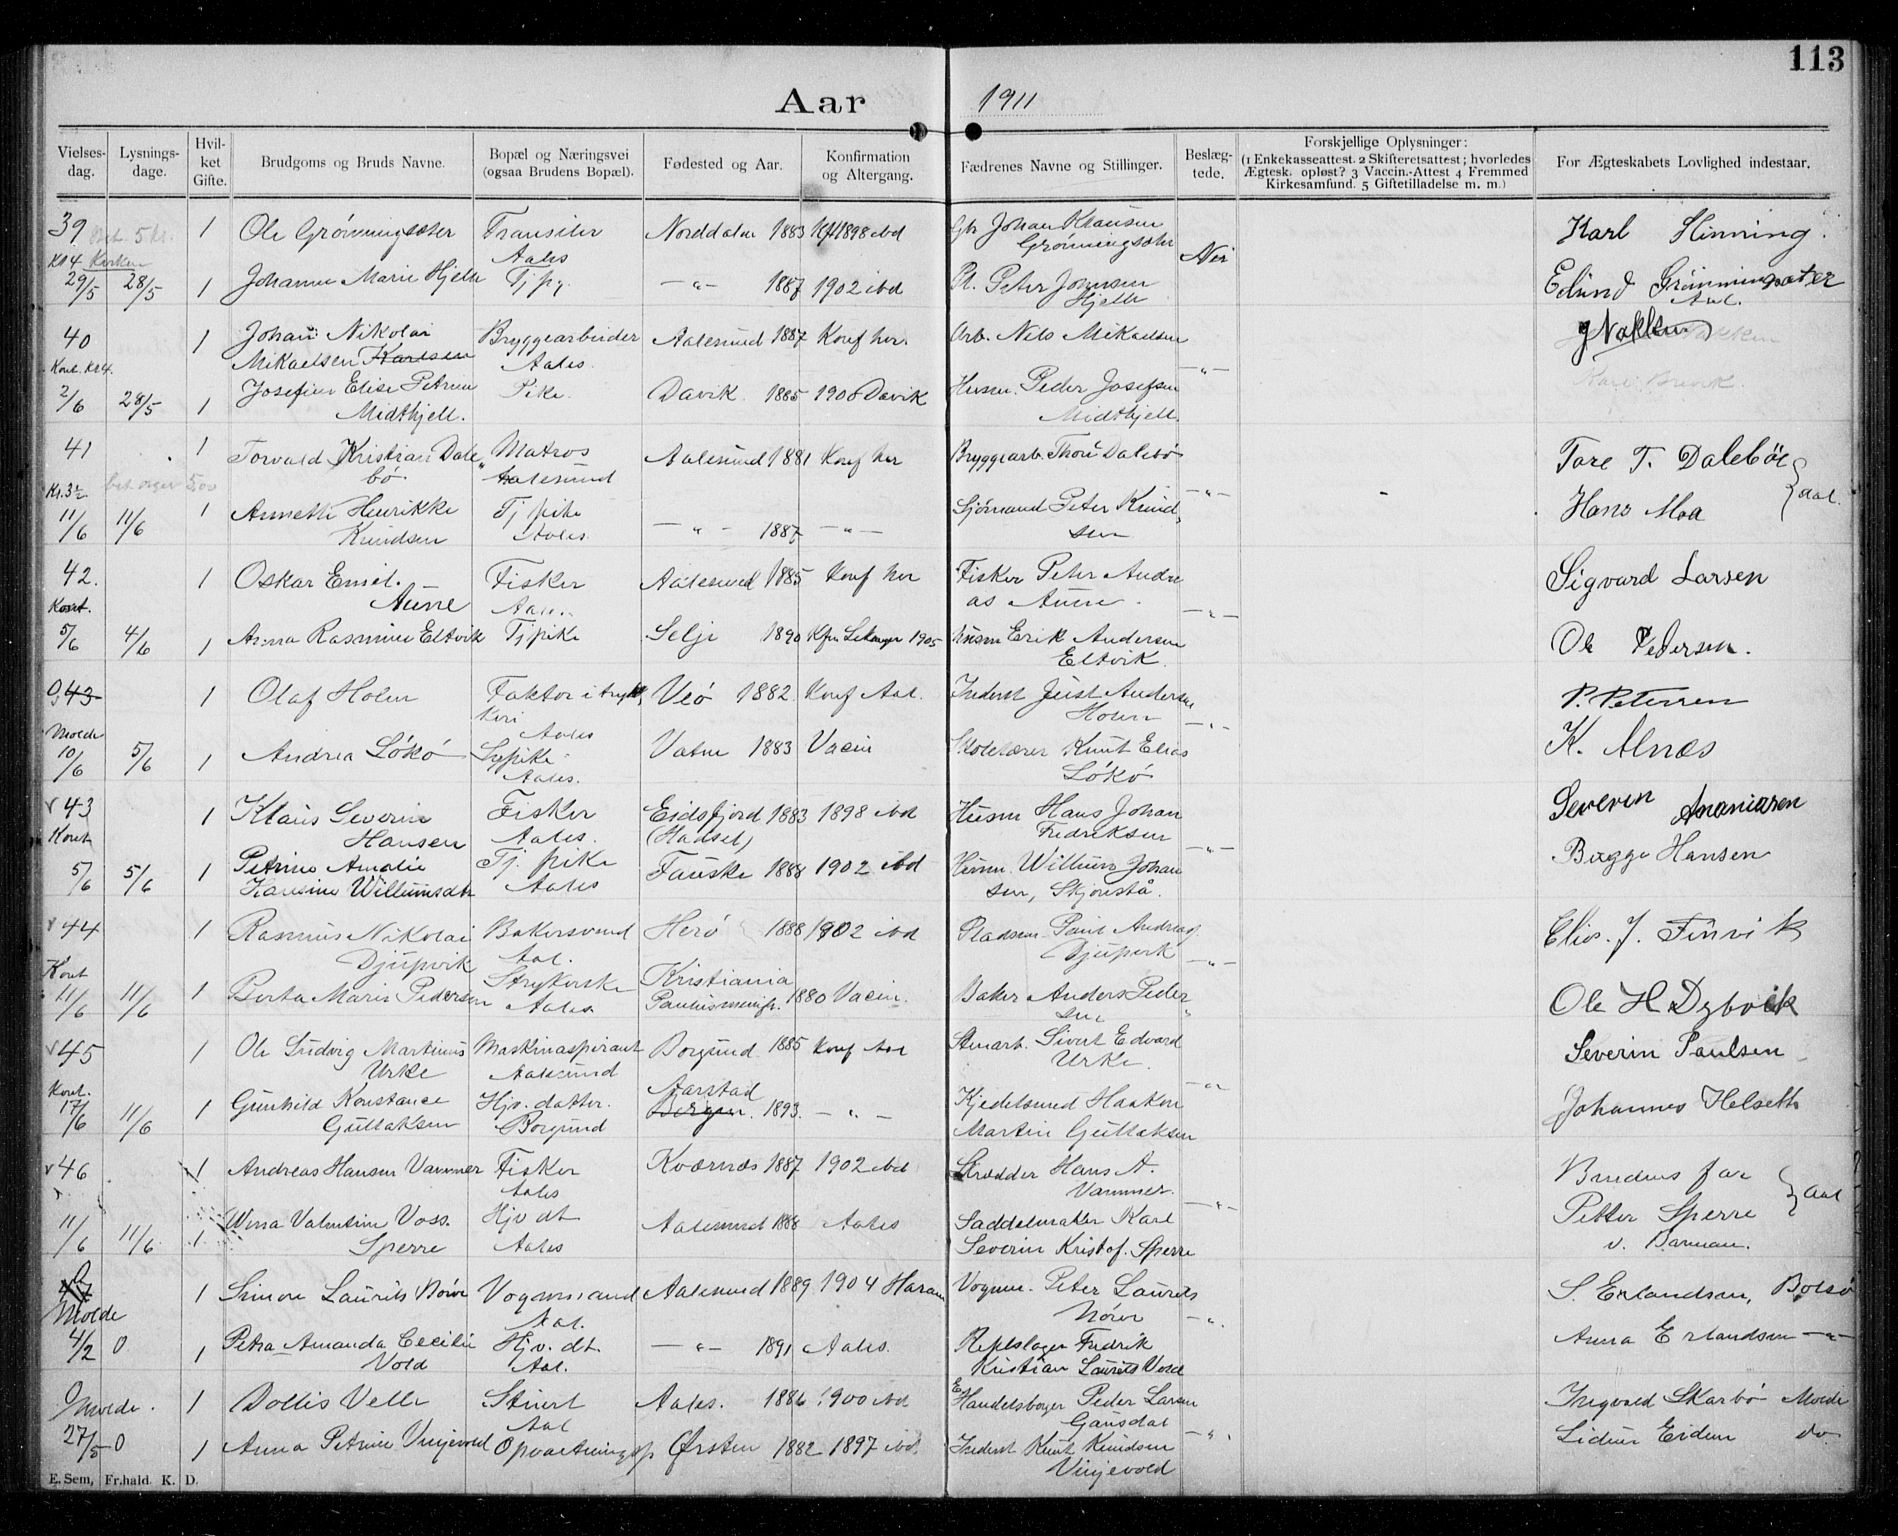 113
Aar 1911
Vielses-dag. Lysnings-dage. Hvil-ket Gifte. Brudgoms og Bruds Navne. Bopæl og Næringsvei (ogsaa Brudens Bopæl). Fødested og Aar. Konfirmation og Altergang. Fædrenes Navne og Stillinger. Beslæg-tede. Forskjellige Oplysninger: (1 Enkekasseattest. 2 Skifteretsattest; hvorledes Ægtesk. opløst? 3 Vaccin.-Attest 4 Fremmed Kirkesamfund. 5 Giftetilladelse m. m.) For Ægteskabets Lovlighed indestaar.
39 1 Ole Grönningsæter Aales Norddalen 1883 1898 ibd Johan Klausen Grönningsæter Nei Karl
29/5 28/5 1 Johanne Marie Hjelle Tj pg. —"— 1887 1902 ibd Pl. Peter Johnsen Hjelle
40 1 Johan Nikolai Mikaelsen Karlsen Bryggearbeider Aales. Aalesund 1887 Konf her. Arb. Nils Mikaelsen
2/6 28/5 1 Josefine Elise Petrine Midthjell. Pike. Davik 1885 1900 Davik Husm. Peder Josefsen Midthjell. —"—
41 1 Torvald Kristian Dalebö. Matros Aalesund Aalesund 1881 Konf her Bryggearb. Thore Dalebö Tore T. Daleböe
11/6 11/6 1 Annette Henrikke Knudsen Tj pike Aales. —"— 1887 —"— Sjömand Peter Knudsen —"— Hans Moa Aal.
42. 1 Oskar Emil Aune Fisker Aales. Aalesund 1885 Konf her Fisker Peter Andreas Aune. Sigvard Larsen
5/6 4/6 1 Anna Rasmine Eltvik Tj pike Selje 1890 1905 Husm Erik Andersen Eltvik. —"— Ole Pedersen.
43 1 Olaf Holen Faktor i trykkeri Aales Veö 1882 Konf Aal. Anderse Holen P. Petersen
Molde 10/6 5/6 1 Andrea Lökö Sypike Aales. Vatne 1883 Vacin Skolelærer Knut Elias Lökö —"— K. Alnæs
43 1 Klaus Severin Hansen Fisker Aales. Eidsfjord (Hadsel) 1883 1898 ibd Husm Hans Johan Fredriksen Severin Ananiasen
5/6 5/6 1 Petrine Amalie Hansine Willumsdtr Tj. pike Aales Fauske 1888 1902 ibd Husm. Willum Johansen, Skjonstå. —"— Bagge Hansen
44 1 Rasmus Nikolai Djupvik Bakersvend Aal. Herö 1888 1902 ibd Pladsm Paul Andreas Djupvik Elias. J. Finvik
11/6 11/6 1 Berta Marie Pedersen Strykerske Aales. Kristiania Paulusmenigh. 1880 Vacin. Baker Anders Pedersen —"— Ole H Dybvik
45 1 Ole Ludvig Martinus Urke Maskinaspirant Aalesund Borgund 1885 Konf Aal Stuarb. Sivert Edvard Urke. Severin Paulsen
17/6 11/6 1 Gunhild Konstance Gullaksen Hjv. datter. Borgund Aarstad Bergen. 1893. —"— Kjedelsmed Haakon Martin Gullaksen Johannes Helseth
46 1 Andreas Hansen Vammer Fisker Aales Kværnæs 1887 1902 ibd Skrædder Hans A. Vammer. Brudens far
11/6 11/6 1 Valentine Voss. Sperre Hjv dt Aales Aalesund 1888 Aales Saddelmaker Karl Severin Kristof. Sperre —"— Petter Sperre Aal
47 Molde 1 Simon Laurits Vognmand Aal. Aalesund 1889 1904 Haram Vognm. Peter Laurits S. Erlandsen, Bolsö
4/2 0 1 Petra Amanda Cecilie Vold Hjv. dt. Aal. —"— 1891 Aales. Repslager Fredrik Kristian Laurits Vold —"— Anna Erlandsen —"—
Molde. 1 Dollis Velle Stuert Aal Aales. 1886 1900 ibd Handelsborger Peder Larsen Gansdal Ingvald Skarbö Molde
27/5 0 1 Anna Petrine Vinjevold Opvartningsp Örsten 1882 1897 ibd. Inderst Knut Knudsen Vinjevold —"— do
E. Sem, Fr.hald. K. D.